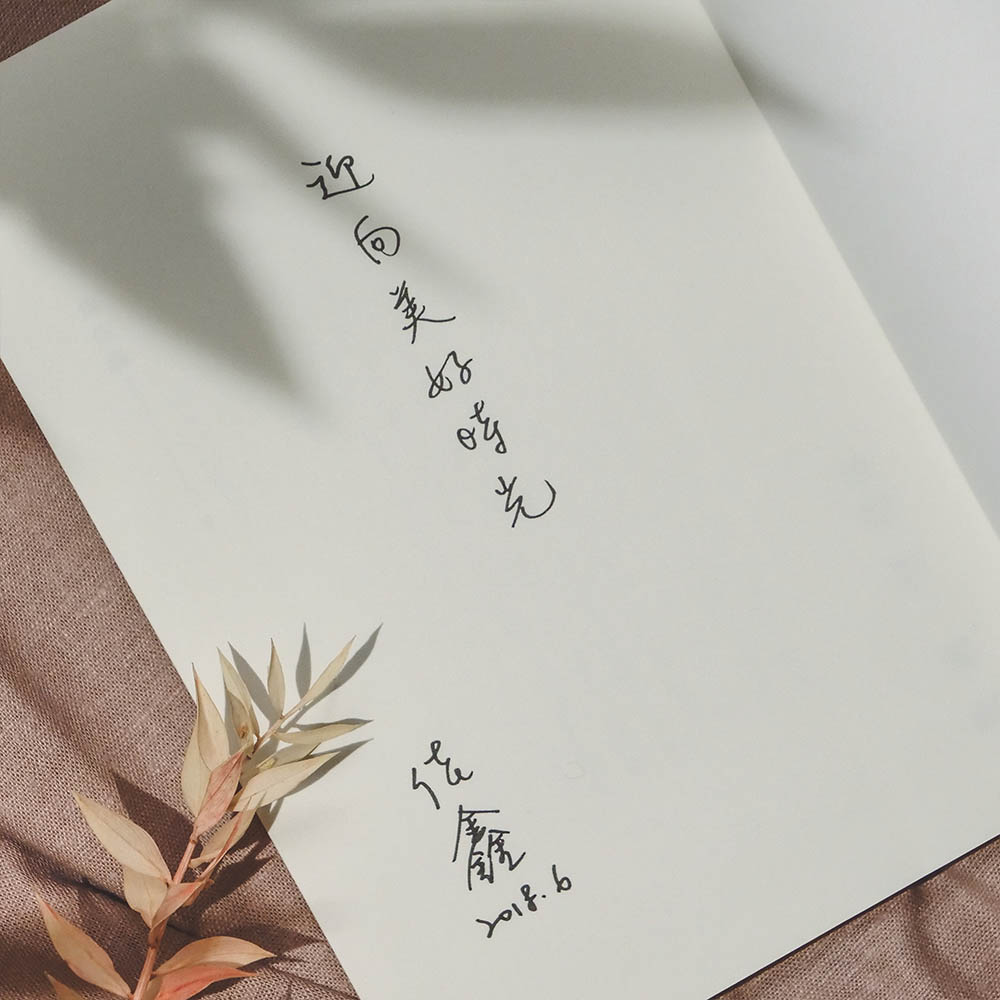 迎向美好時光
佳鑫
2018.6